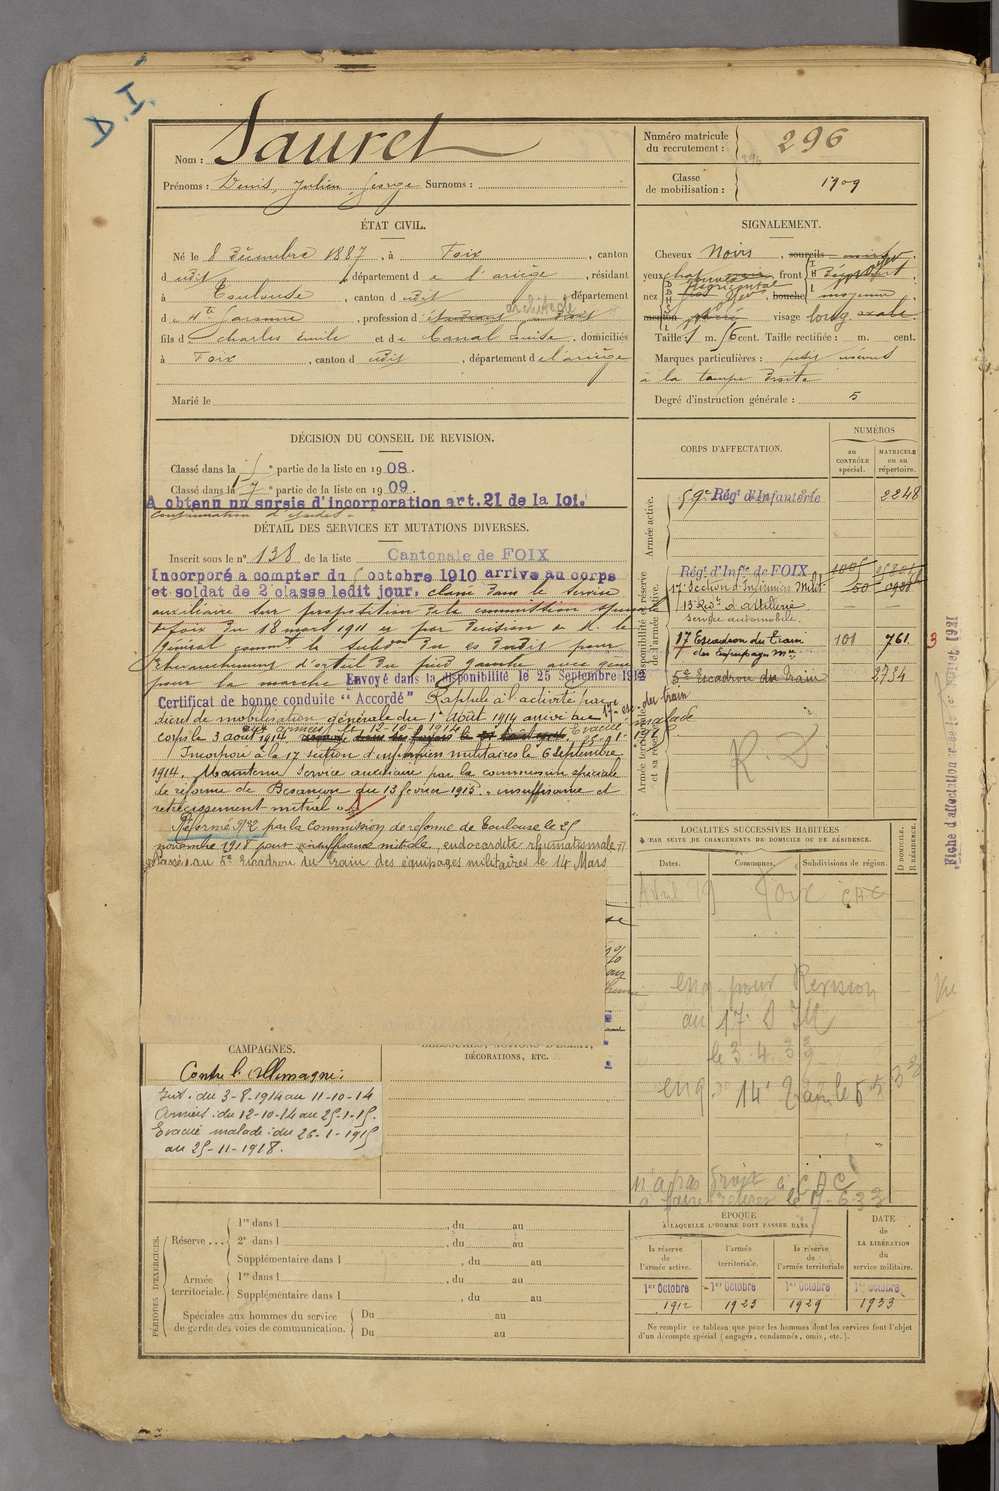 D. I.
Nom : Sauret
Prénoms : Denis, Julien, George Surnoms :
Numéro matricule
du recrutement : 296
Classe
de mobilisation : 1909
ÉTAT CIVIL.
Né le 8 Décembre 1887, à Foix, canton
dudit, département de l'ariège, résidant
à Toulouse, canton dudit, département
de Hte Garonne, profession d'étudiant en droit
fils de Charles Émile et de Canal Louise, domiciliés
à Foix, canton dudit, département de l'ariège
Marié le
SIGNALEMENT.
Cheveux Noirs, sourcils noirs
yeux front
nez bouche moyenne
menton visage long, ovale
Taille : 1 m. 56 cent. Taille rectifiée : m. cent.
Marques particulières : petit
à la tempe droite
Degré d'instruction générale : 5
DÉCISION DU CONSEIL DE REVISION.
Classé dans la partie de la liste en 1908.
Classé dans la partie de la liste en 1909.
A obtenu un sursis d'incorporation art. 21 de la loi.
DÉTAIL DES SERVICES ET MUTATIONS DIVERSES.
Inscrit sous le n° 138 de la liste Cantonale de FOIX
Incorporé a compter du octobre 1910 arrive au corps
et soldat de 2e classe ledit jour, classé dans le service
auxiliaire sur proposition de la commission
de foix du 18 mars 1911 et par décision de M. le
Général comm. la subdon du es dudit pour
chevauchement d'orteil du pied gauche avec gêne
pour la marche Envoyé dans la disponibilité le 25 Septembre 1912
Certificat de bonne conduite "Accordé" Rappelé à l'activité par
décret de mobilisation générale du 1er Août 1914 arrivé au 17e esc. du train
corps le 3 août 1914. aux armées le 12-10-1914. Evacué malade
Incorporé à la 17 section d'infirmiers militaires le 6 septembre
1914. Maintenu service auxiliaire par la commission spéciale
de réforme de Besançon du 13 février 1915. "insuffisance et
rétrécissement mitral"
Réformé N°2 par la Commission de réforme de Toulouse le 25
novembre 1918 pour insuffisance mitrale, endocardite rhumatismale
Passé au 5e Escadron du train des équipages militaires le 14 Mars
CORPS D'AFFECTATION.
NUMÉROS
au
CONTRÔLE
spécial.
MATRICULE
ou au
répertoire.
Armée active.
59e Régt d'Infanterie 2248
Disponibilité et réserve
de l'armée active.
Régt d'Infie de FOIX
17e Section d'Infirmiers Milit
13 Régt d'artillerie
Service automobile.
17 Escadron du Train 101 761 3
des Equipages Mres
5e Escadron du Train 2734
Armée territoriale
et sa réserve
R. D
Fiche d'affectation
LOCALITÉS SUCCESSIVES HABITÉES
PAR SUITE DE CHANGEMENTS DE DOMICILE OU DE RÉSIDENCE.
Dates. Communes. Subdivisions de région.
D DOMICILE.
R RÉSIDENCE.
Avril 29 Foix CAC
enq. pour Révision
au 17e D
le 3.4.33
enq. 14e Train le 5.5.33
n'a pas droit à CAC
le 17-6-33
Vu
CAMPAGNES.
Contre l'Allemagne :
Int. : du 3-8-1914 au 11-10-14
Armées : du 12-10-14 au 25-1-15.
Evacué malade : du 26-1-1915
au 25-11-1918.
BLESSURES, ACTIONS D'ÉCLAT,
DÉCORATIONS, ETC.
PÉRIODES D'EXERCICES.
Réserve ...
1re dans l , du au
2e dans l , du au
Supplémentaire dans l , du au
Armée
territoriale.
1re dans l , du au
Supplémentaire dans l , du au
Spéciales aux hommes du service
de garde des voies de communication.
Du au
Du au
ÉPOQUE
À LAQUELLE L'HOMME DOIT PASSER DANS :
la réserve
de
l'armée active.
l'armée
territoriale.
la réserve
de
l'armée territoriale
DATE
de
LA LIBÉRATION
du
service militaire.
1er Octobre 1er Octobre 1er Octobre 1er Octobre
1912 1923 1929 1933
Ne remplir ce tableau que pour les hommes dont les services font l'objet
d'un décompte spécial (engagés, condamnés, omis, etc.).